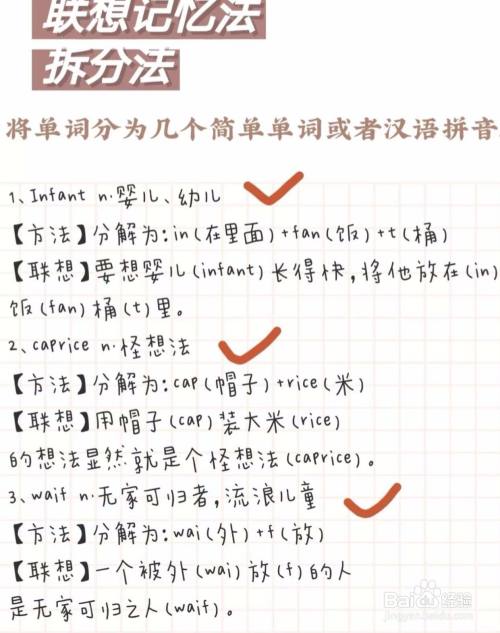 联想记忆法
拆分法
将单词分为几个简单单词或者汉语拼音
1、Infant n.婴儿、幼儿
【方法】分解为:in(在里面)+fan(饭)+t(桶)
【联想】要想婴儿(infant)长得快,将他放在(in)
饭(fan)桶(t)里。
2、caprice n.怪想法
【方法】分解为:cap(帽子)+rice(米)
【联想】用帽子(cap)装大米(rice)
的想法显然就是个怪想法(caprice)。
3、waif n.无家可归者,流浪儿童
【方法】分解为:wai(外)+f(放)
【联想】一个被外(wai)放(f)的人
是无家可归之人(waif)。
Baidu经验